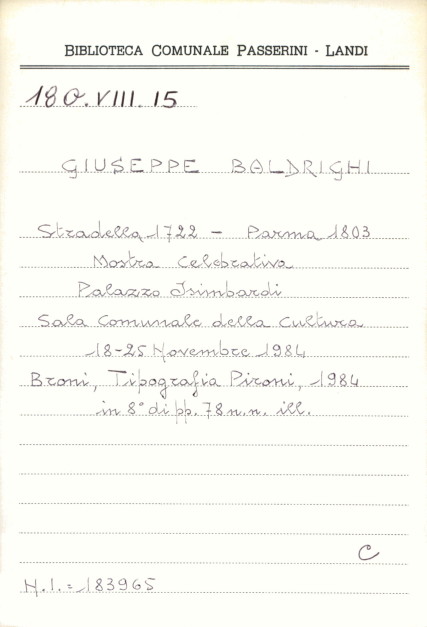 BIBLIOTECA COMUNALE PASSERINI - LANDI
180.VIII.15
GIUSEPPE BALDRIGHI
Stradella 1722 - Parma 1803
Mostra Celebrativa
Palazzo Isimbardi
Sala Comunale della Cultura
18-25 Novembre 1984
Broni, Tipografia Pironi, 1984
in 8° di pp. 78 n.n. ill.
C
N.I.= 183965